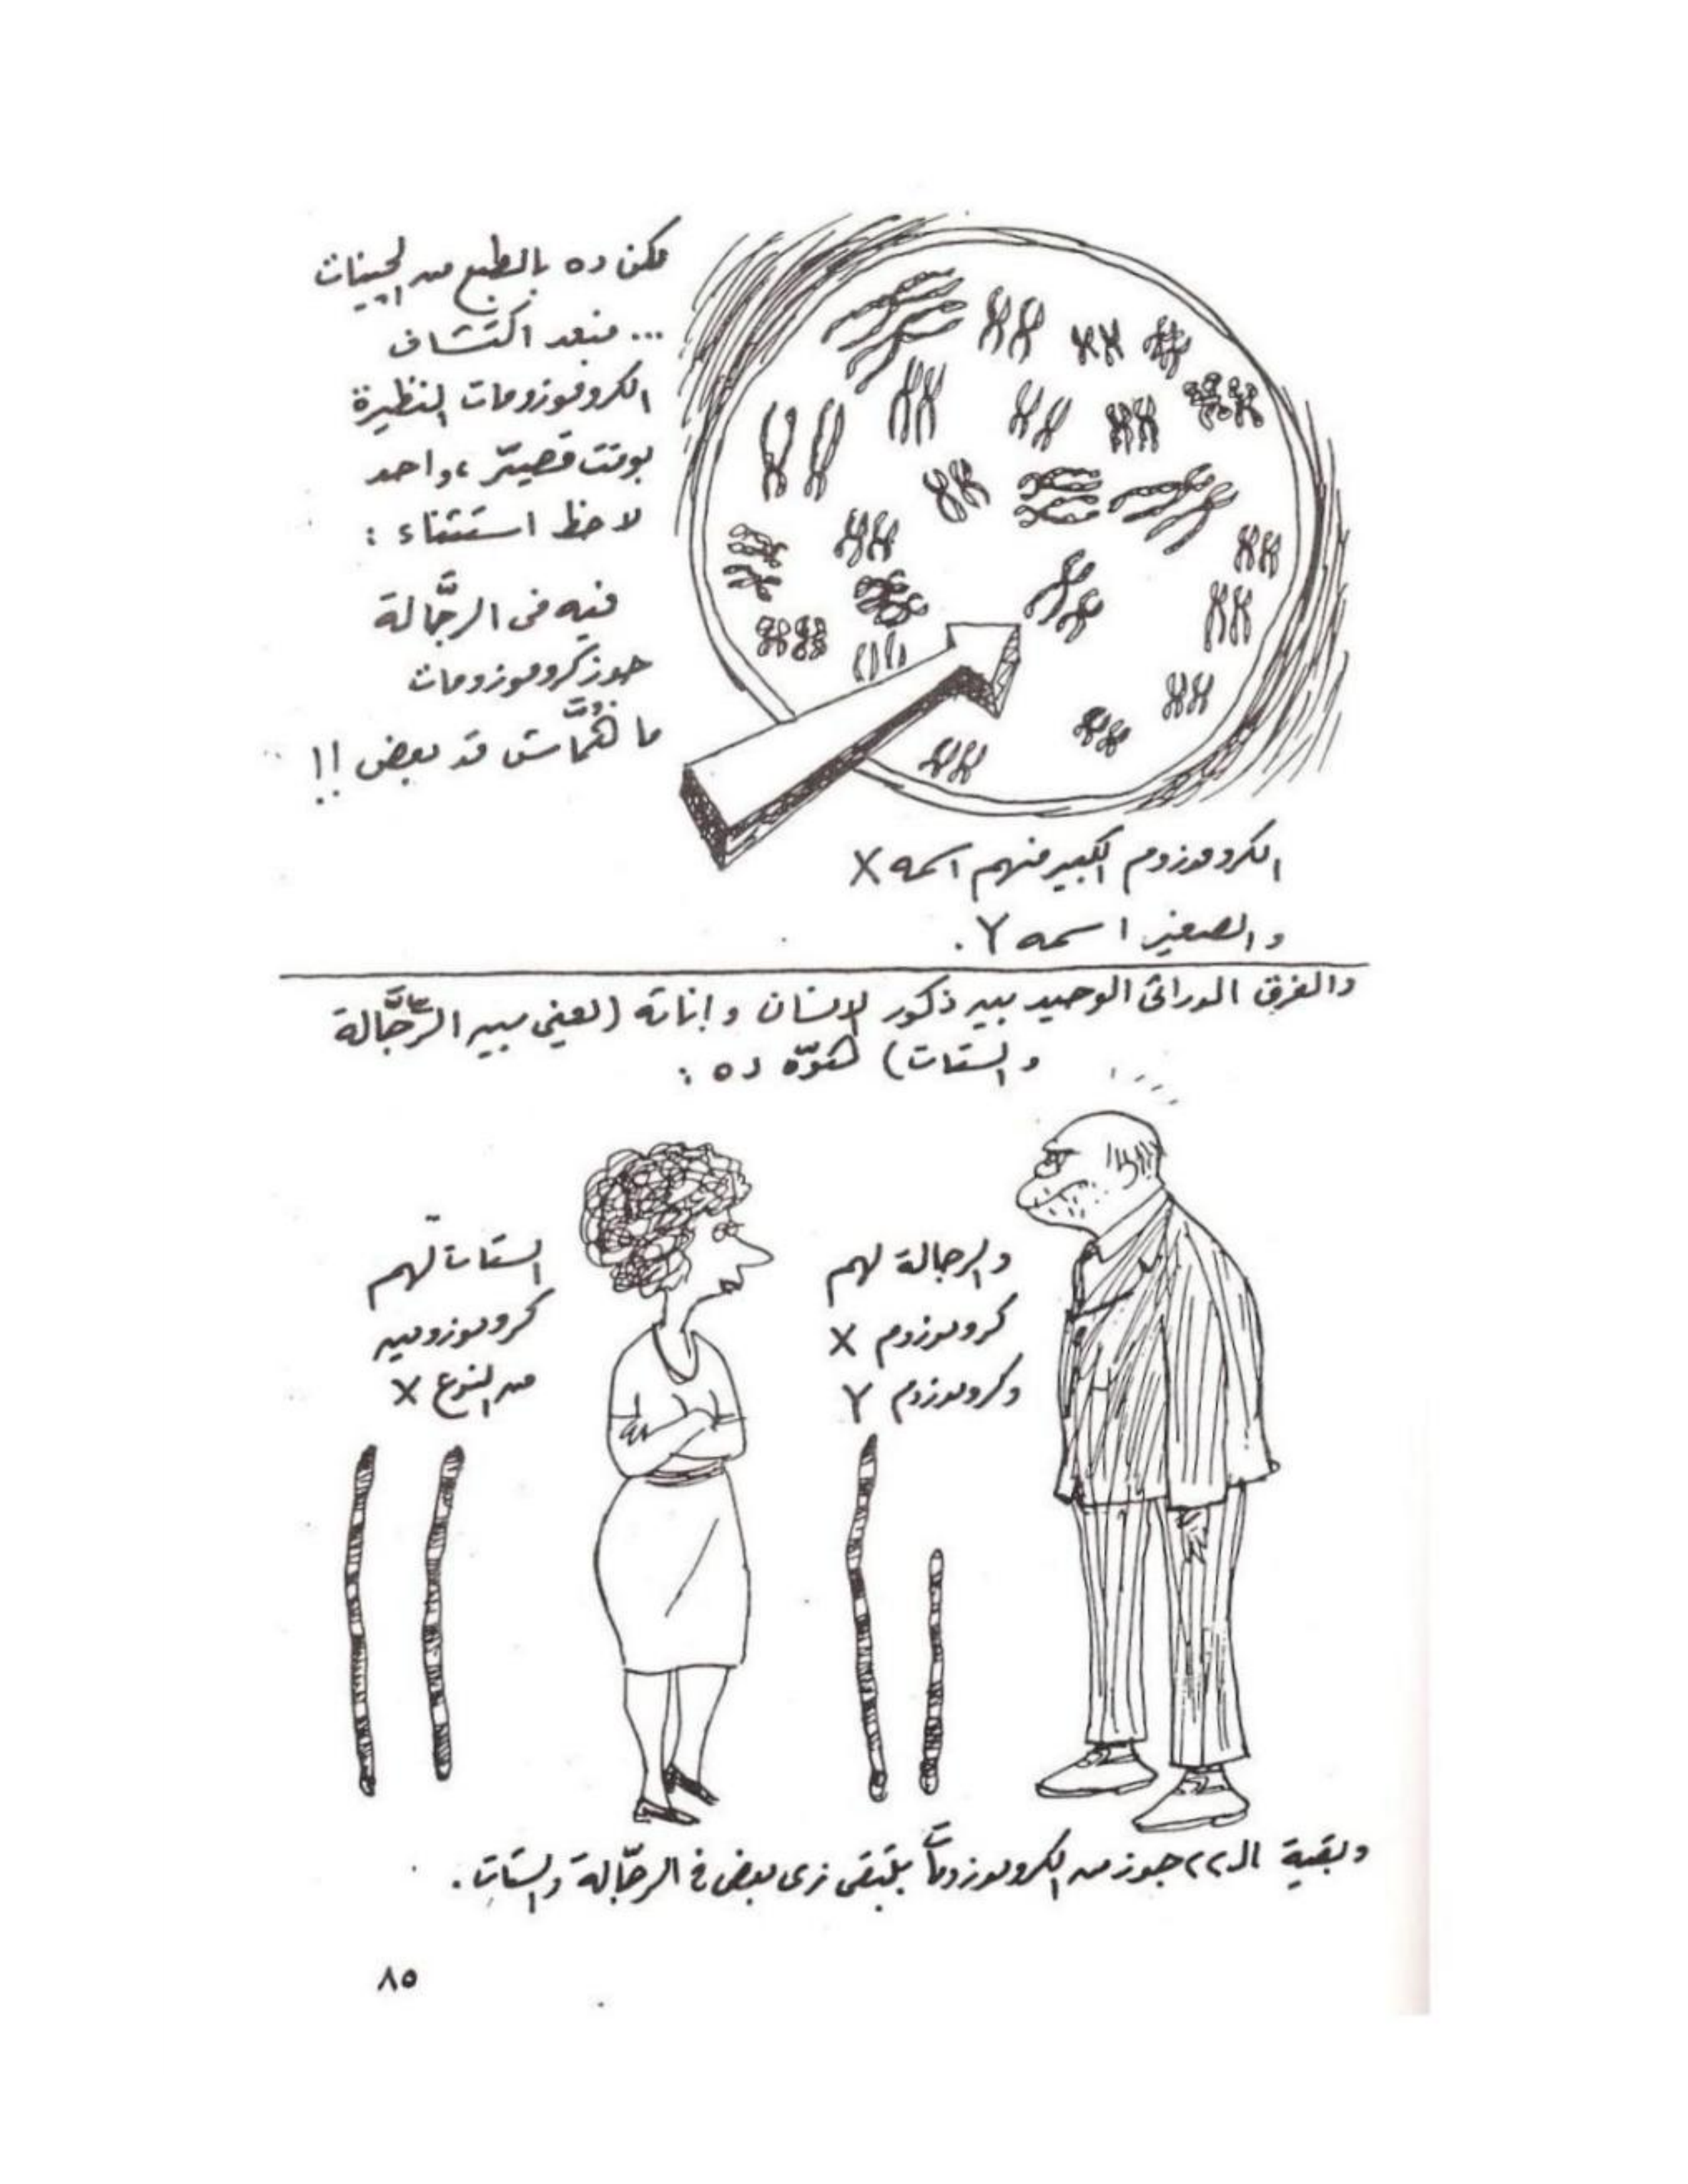 ممكن ده بالطبع من الجينات
... فبعد اكتشاف
الكروموزومات النظيرة
بوقت قصيّر، واحد
لاحظ استثناء :
فيه فى الرجّالة
جوز كروموزومات
ما هُمّاش قد بعض !!
الكروموزوم الكبير منهم اسمه X
والصغير اسمه Y .
والفرق الوراثى الوحيد بين ذكور الإنسان وإناثه (يعنى بين الرجّالة
والستات) هُوّه ده :
الستات لهم
كروموزومين
من النوع X
والرجالة لهم
كروموزوم X
وكروموزوم Y
وبقية الـ ٢٢ جوز من الكروموزومات بتبقى زى بعض فى الرجّالة والستات .
٨٥